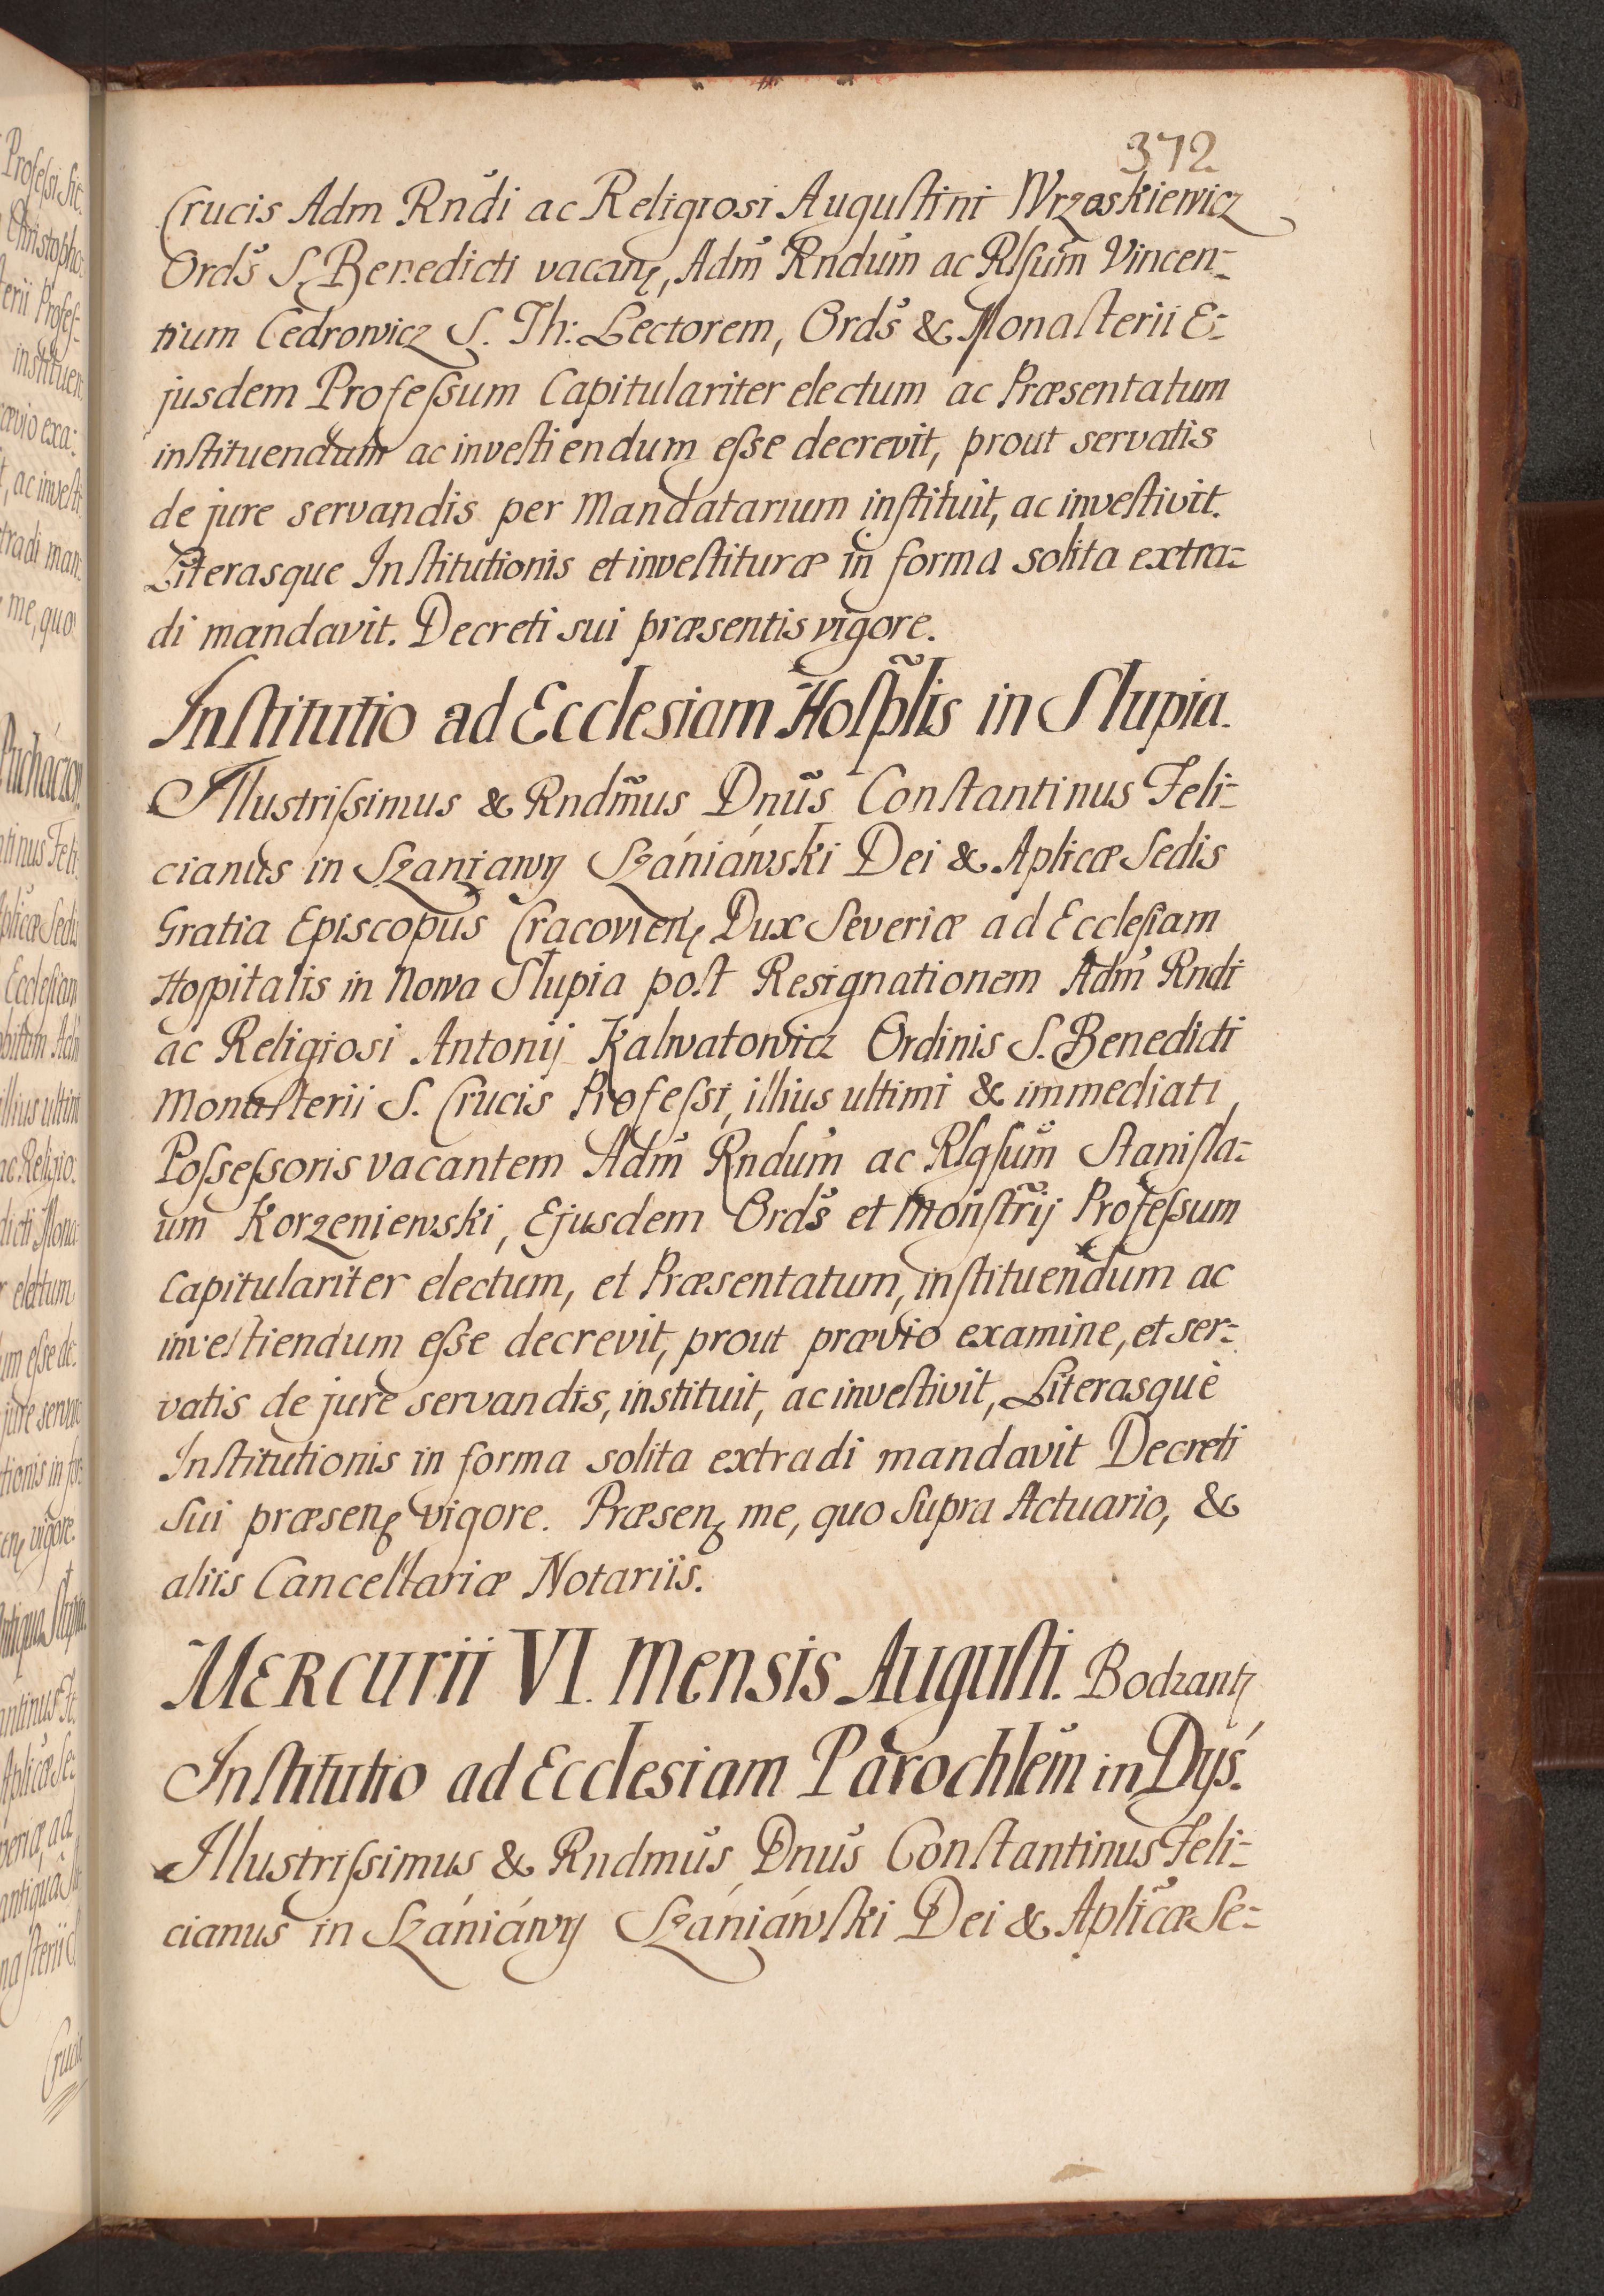 372
Crucis Adm Rndi ac Religiosi Augustini Wrzoskiewicz
Ords S. Benedicti vacanę, Adm Rndum ac Rlsum Vincen=
tium Cedrowicz S. Th: Lectorem, Ords & Monasterii E=
jusdem Professum Capitulariter electum ac Præsentatum
instituendum ac investiendum esse decrevit, prout servatis
de jure servandis per Mandatarium instituit, ac investivit.
Literasque Institutionis et investituræ in forma solita extra=
di mandavit. Decreti sui præsentis vigore.
Institutio ad Ecclesiam Hosplis in Slupia.
Illustrissimus & Rndmus Dnus Constantinus Feli=
cianus in Szaniawy Szániáwski Dei & Aplicæ Sedis
Gratia Episcopus Cracovienę Dux Severiæ ad Ecclesiam
Hospitalis in Nowa Slupia post Resignationem Adm Rndi
ac Religiosi Antonij Kalwatowicz Ordinis S. Benedicti
Monasterii S. Crucis Professi, illius ultimi & immediati
Possessoris vacantem Adm Rndum ac Rlgsum Stanisla=
um Korzeniewski, Ejusdem Ords et Monstrij Professum
Capitulariter electum, et Præsentatum, instituendum ac
investiendum esse decrevit, prout prævio examine, et ser=
vatis de jure servandis, instituit, ac investivit, Literasque
Institutionis in forma solita extradi mandavit Decreti
sui præsenę vigore. Præsenę me, quo supra Actuario, &
aliis Cancellariæ Notariis.
Mercurii VI. Mensis Augusti. Bodzantę
Institutio ad Ecclesiam Parochlem in Dyś.
Illustrissimus & Rndmus Dnus Constantinus Feli=
cianus in Szániáwy Szániáwski Dei & Aplicæ Se=